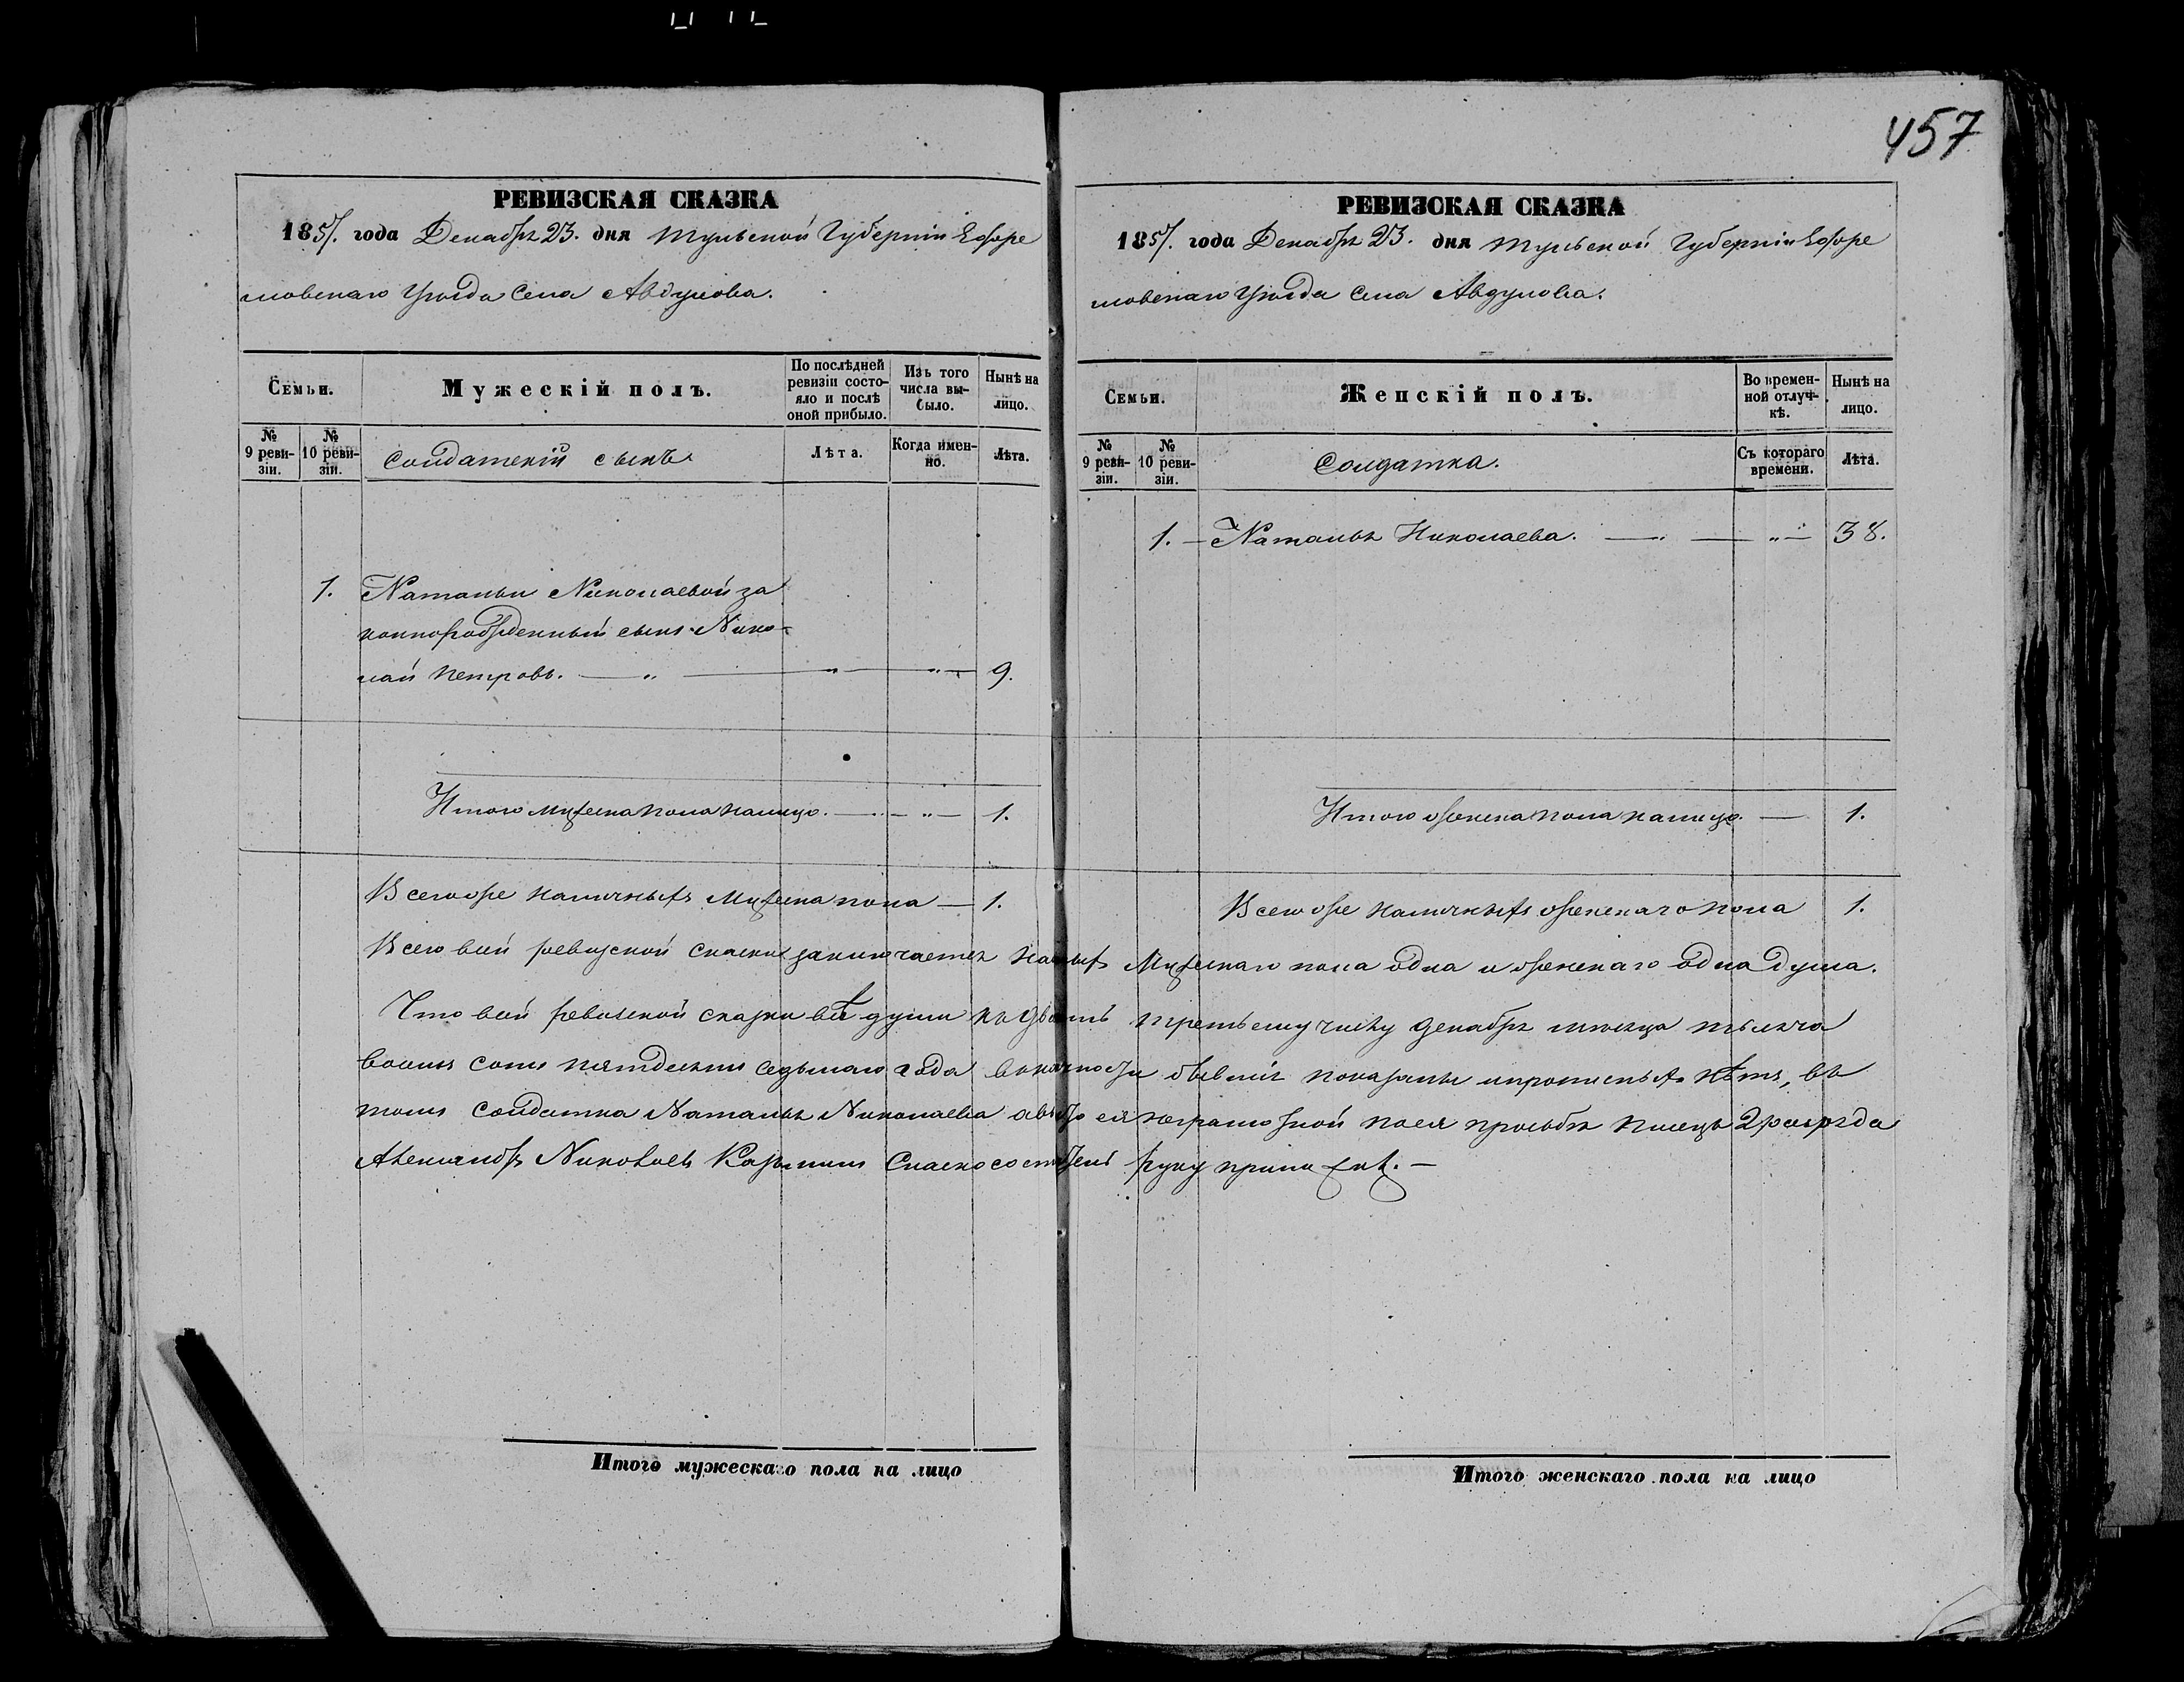 457
РЕВИЗСКАЯ СКАЗКА
1857. года Декабря 23. дня Тульской Губерніи Ефре
мовскаго Уѣзда Села Авдулова.
Семьи.
Мужескій полъ.
По послѣдней ревизіи состояло и послѣ оной прибыло.
Изъ того числа выбыло.
Нынѣ на лицо.
№ 9 ревизіи.
№ 10 ревизіи.
Солдатскій сынъ
Лѣта.
Когда именно.
Лѣта.
1. Натальи Николаевой за
коннорожденный сынъ Нико-
лай Петровъ. — „ — „ — „ — 9.
Итого мужеска пола налицо. — „ — 1.
Всегоже наличныхъ Мужеска пола — 1.
РЕВИЗСКАЯ СКАЗКА
1857. года Декабря 23. дня Тульской Губерніи Ефре
мовскаго Уѣзда Села Авдулова.
Семьи.
Женскій полъ.
Во временной отлучкѣ.
Нынѣ на лицо.
№ 9 ревизіи.
№ 10 ревизіи.
Солдатка.
Съ котораго времени.
Лѣта.
1. — Наталья Николаева. — „ — „ — 38.
Итого женска пола налицо. — 1.
Всегоже наличныхъ женскаго пола 1.
Всего въсей ревизской сказки заключается Мужескаго пола одна и женскаго одна душа.
Что въсей ревизской сказки всѣ души къ двадцать третьему числу декабря мѣсяца тысяча
восемь сотъ пятдесятъ седьмаго года бывшія показаны и прописныхъ нѣтъ, въ
томъ солдатка Наталья Николаева а вмѣсто ея неграмотной по ея просьбѣ писецъ 2 разряда
Александръ Николаевъ руку приложилъ. —
Итого мужескаго пола на лицо
Итого женскаго пола на лицо